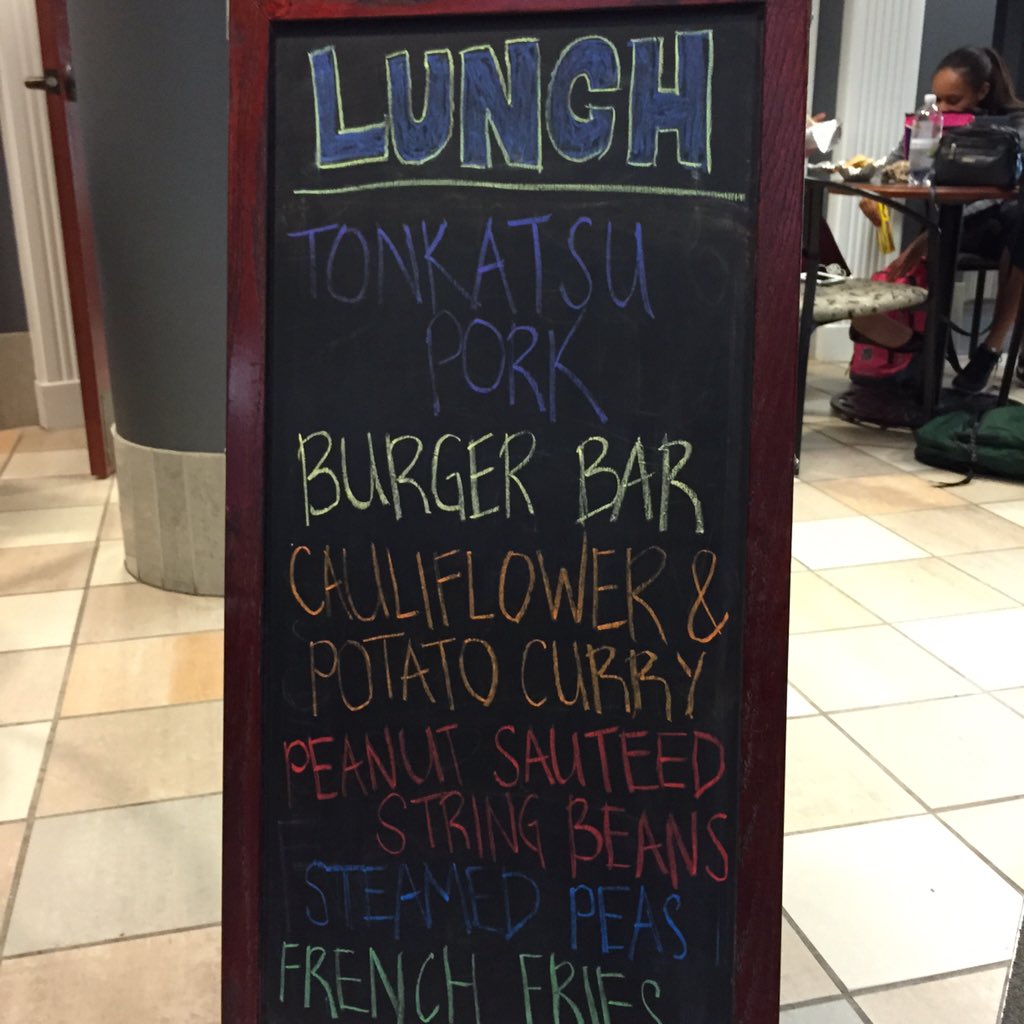 LUNCH
TONKATSU
PORK
BURGER BAR
CAULIFLOWER &
POTATO CURRY
PEANUT SAUTEED
STRING BEANS
STEAMED PEAS
FRENCH FRIES